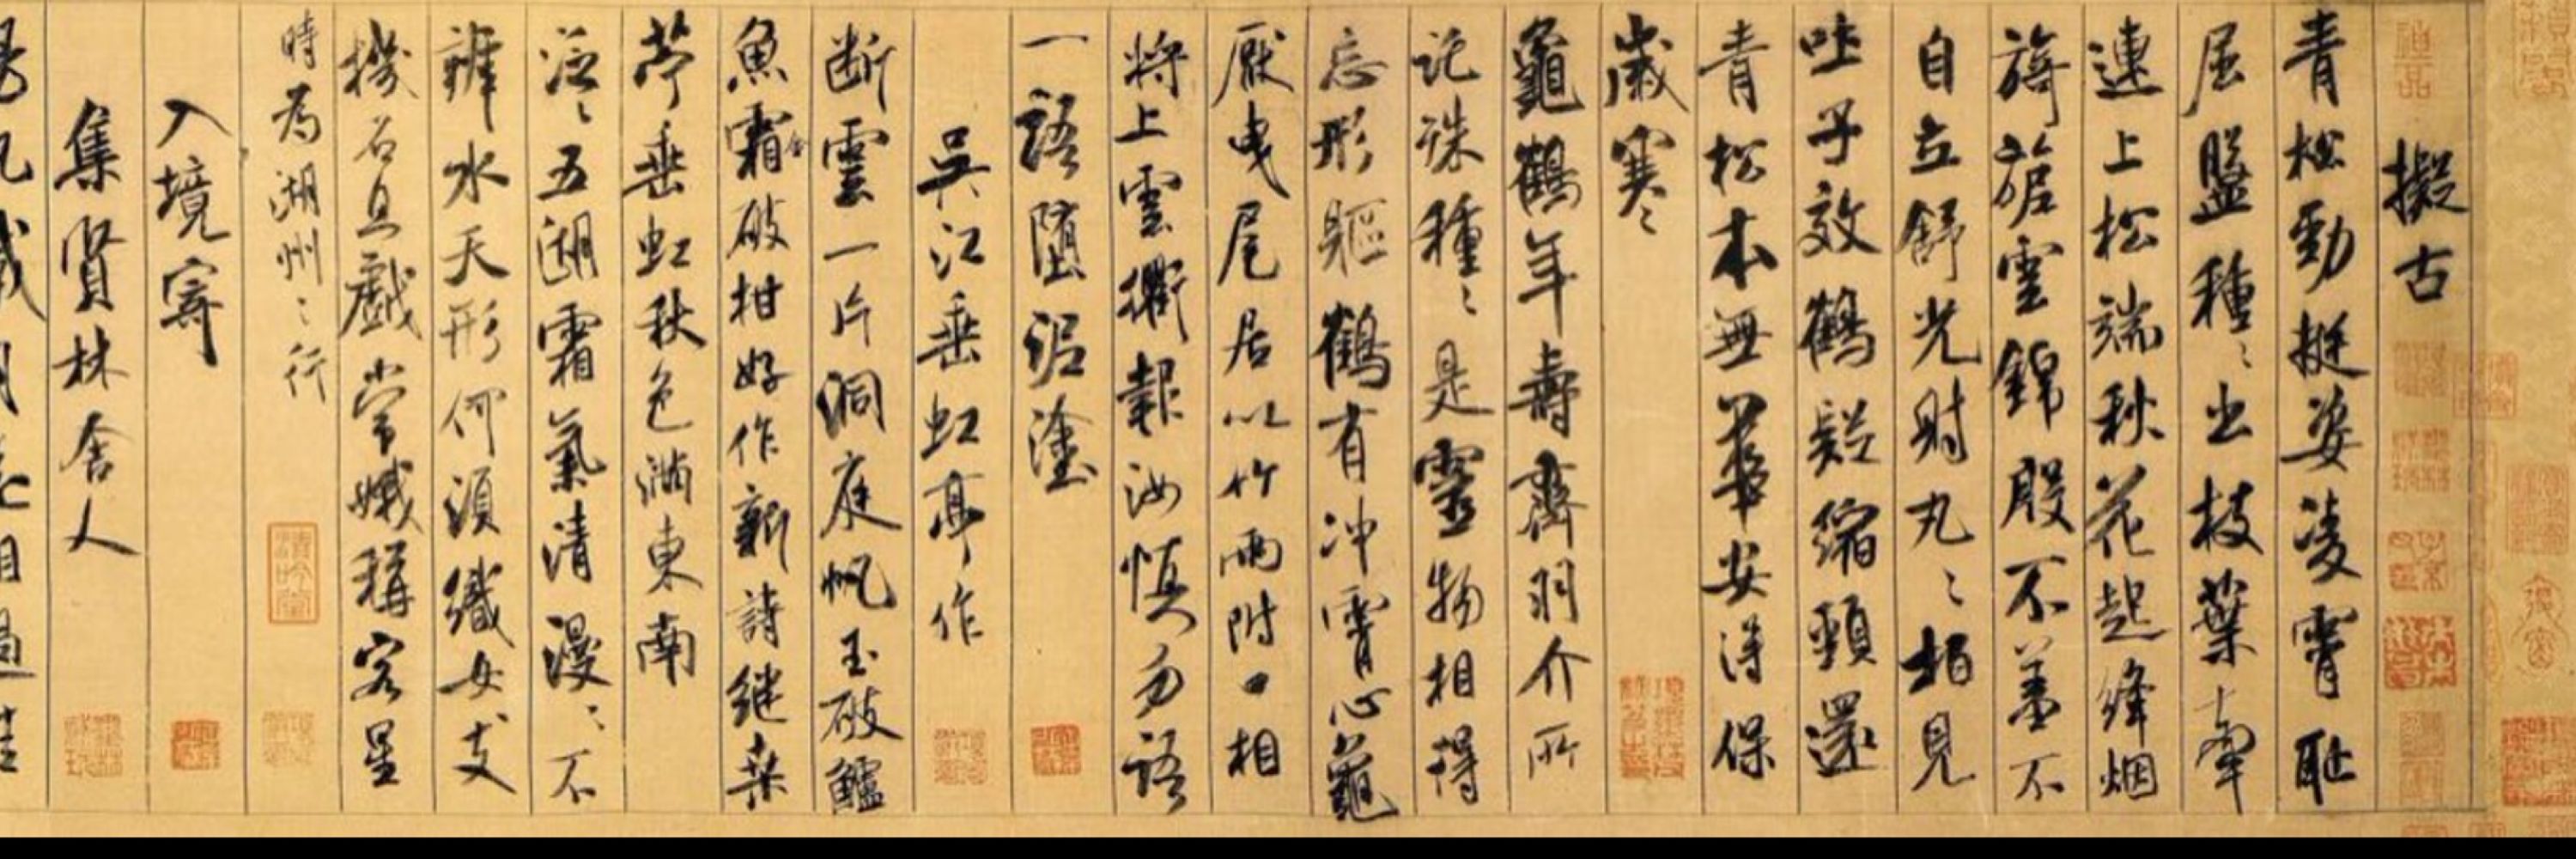 擬古
青松勁挺姿凌霄恥
屈盤種〻出枝葉牽
連上松端秋花起絳烟
旖旎雲錦殷不羞不
自立舒光射丸〻柏見
吐子效鶴疑縮頸還
青松本無華安得保
歲寒〻
龜鶴年壽齊羽介所
託殊種〻是靈物相得
忘形軀鶴有冲霄心龜
厭曳尾居以竹兩附口相
將上雲衢報汝慎勿語
一語墮泥塗
吳江垂虹亭作
断雲一片洞庭帆玉破鱸
魚霜破柑好作新詩継桒
苧垂虹秋色滿東南
泛〻五湖霜氣清漫〻不
辨水天形何須織女支
機石且戲常娥稱客星
時為湖州之行
入境寄
集賢林舍人